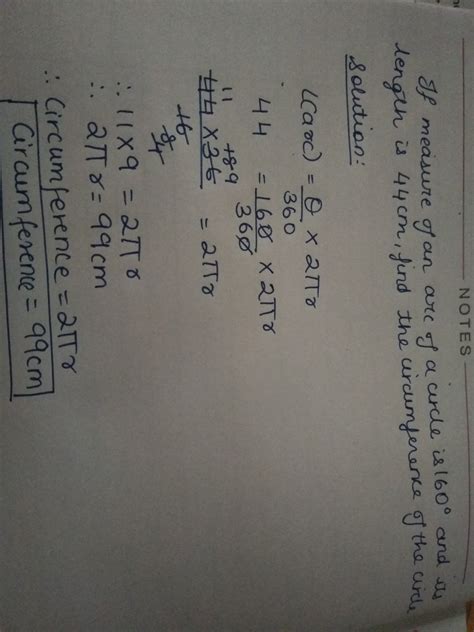 NOTES
If measure of an arc of a circle is 160° and its
length is 44cm, find the circumference of the circle
Solution:
l(arc) = θ/360 × 2πr
44 = 160/360 × 2πr
11 18 9
44 × 36 / 16 = 2πr
8
4
∴ 11 × 9 = 2πr
∴ 2πr = 99cm
∴ Circumference = 2πr
Circumference = 99cm